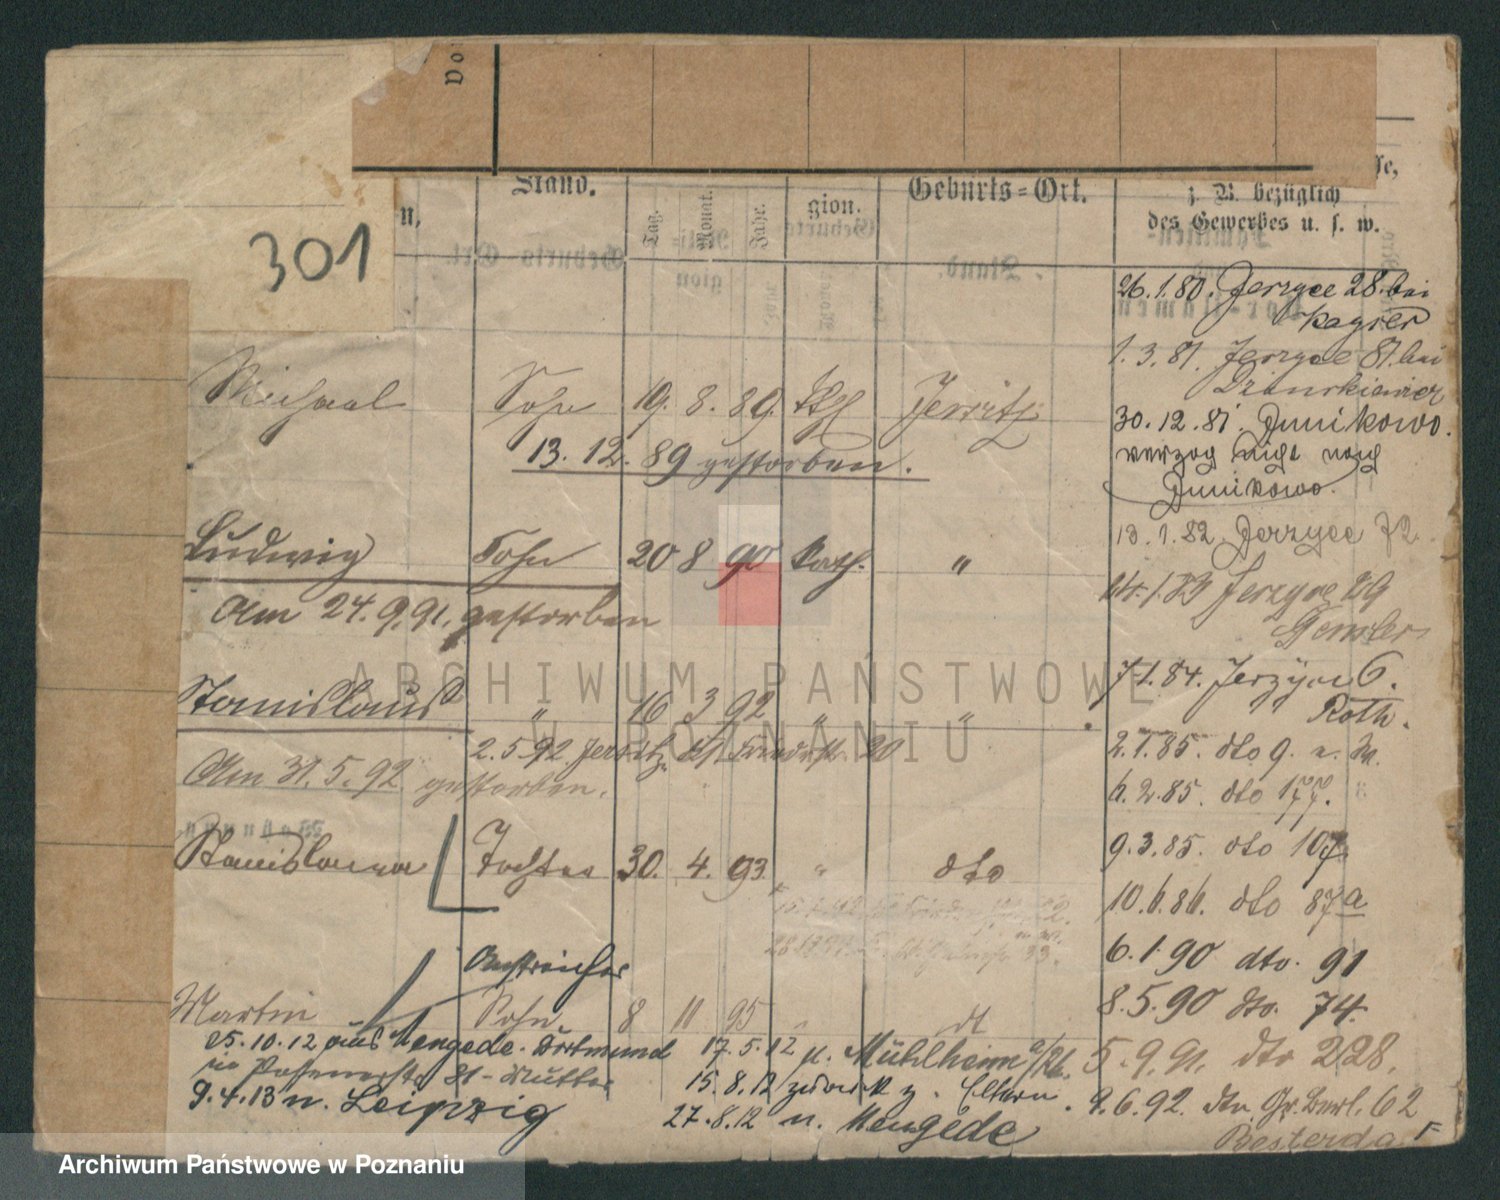 Vo
301
n,
Stand.
Tag.
Monat.
Jahr.
gion.
Geburts=Ort.
sse,
z. B. bezüglich
des Gewerbes u. s. w.
26.1.80. Jerzyce 28. bei
Kayser
Michael Sohn 19. 8. 89. Kth Jersitz
1.3.81. Jerzyce 81. bei
13. 12. 89 gestorben.
30.12.81. Junikowo.
verzog nicht nach
Junikowo.
Ludwig Sohn 20 8 90 kath. "
13.1.82. Jerzyce 72.
Am 24.9.91. gestorben
14.1.83 Jerzyce 89
Gensler
Stanislaus " 16 3 92 " "
7.1.84. Jerzyce 6.
Roth.
2.5.92. Jersitz 20
2.1.85. dto 9.
Am 31.5.92 gestorben.
6.2.85. dto 177.
Stanislawa Tochter 30. 4. 93. " dto
9.3.85. dto 107.
10.6.86. dto 87a
Anstreicher
6.1.90 dto. 91
Martin Sohn 8 11 95 " dt
8.5.90 dto. 74.
25.10.12 aus Mengede-Dortmund
17.5.12 n. Mühlheim a/Rh.
5.9.91. dto 228.
in 31-Mutter
15.8.12 zurück z. Eltern.
9.4.13 n. Leipzig
27.8.12 n. Mengede
9.6.92. dto. Gr. Berl. 62
ARCHIWUM PAŃSTWOWE
W POZNANIU
Archiwum Państwowe w Poznaniu